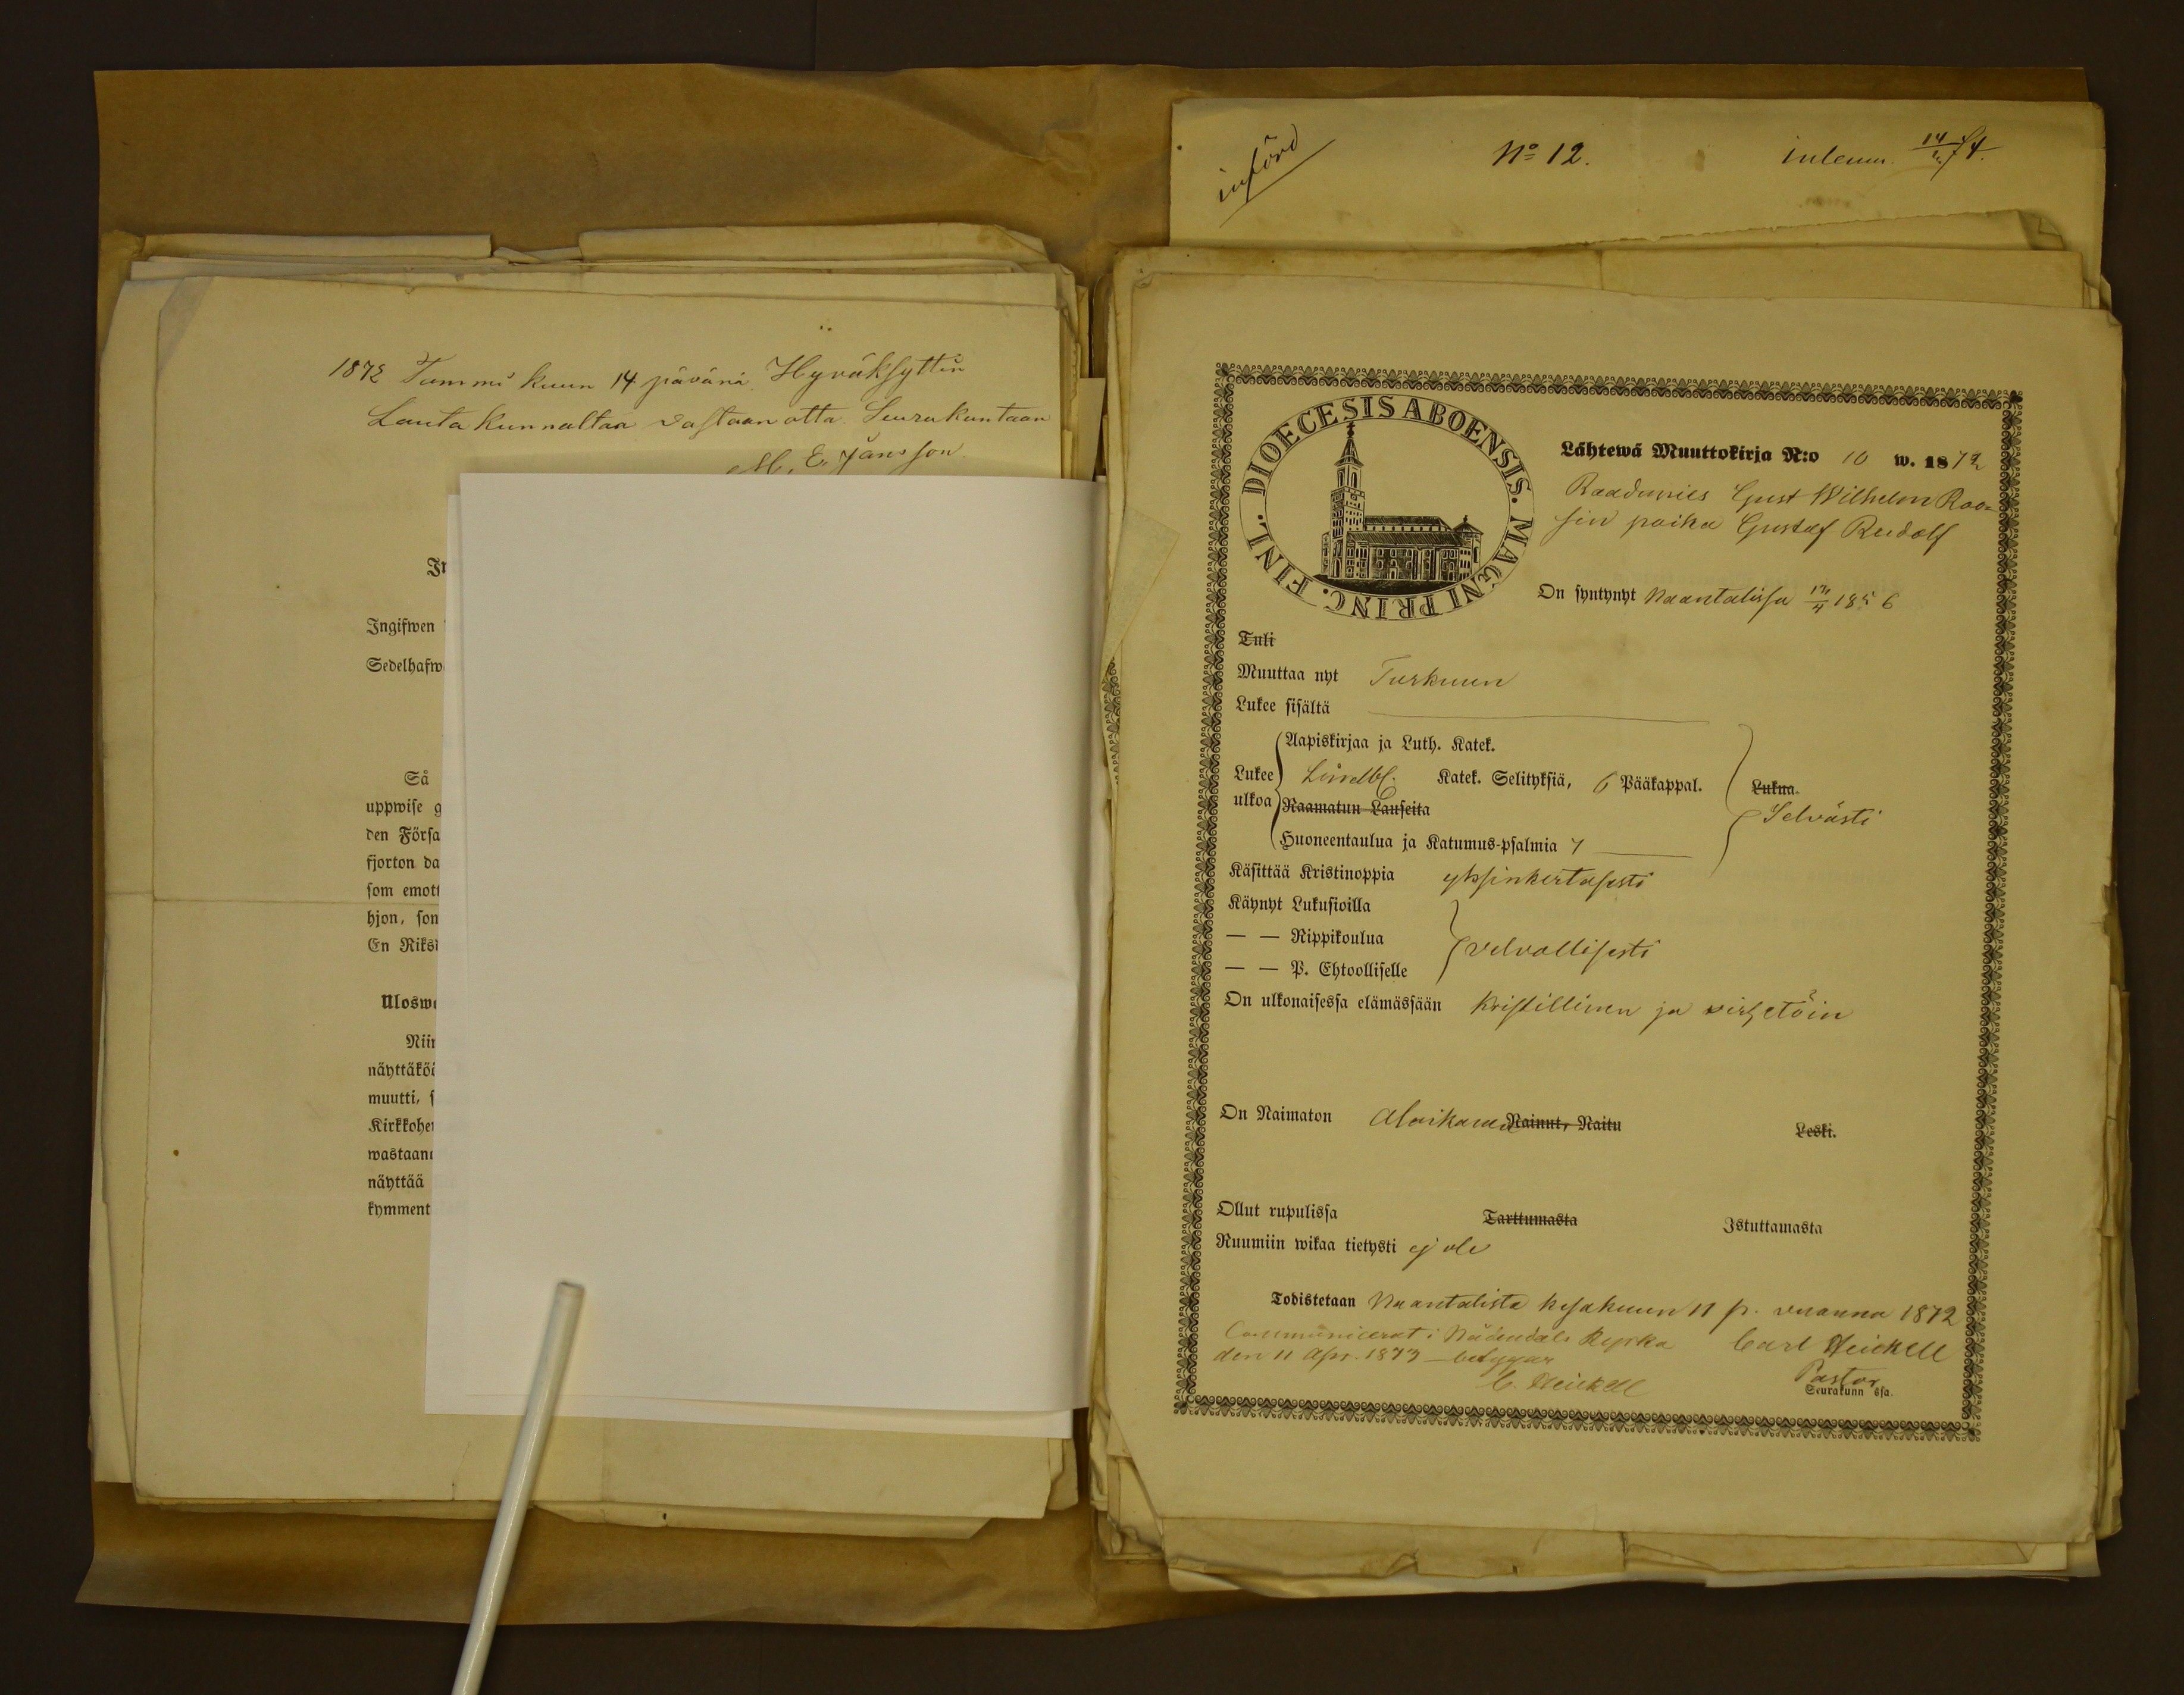 1872 Tammi kuun 14 pävänä Hyväksyttin
Lauta kunnaltaa vastaan otta Seurakuntaan
M. E. Jansson
In
Ingifwen
Sedelhafw
Så
uppwise g
den Församl
fjorton da
som emott
hjon, som
En Riksd
Uloswo
Niin
näyttäköö
muutti, s
Kirkkoher
wastaano
näyttää
kymment
införd
No 12.
inlemn. 74.
DIOECESIS ABOENSIS. MAGNI PRINC. FINL.
Lähtewä Muuttokirja N:o 10 w. 1872
Raadmies Gust Wilhelm Roo-
sin poika Gustaf Rudolf
On syntynyt Naantalissa 1856
Tuli
Muuttaa nyt Turkuun
Lukee sisältä
Aapiskirjaa ja Luth. Katek.
Lukee Lindbl. Katek. Selityksiä, 6 Pääkappal. Lukua.
ulkoa Raamatun Lauseita
Selvästi
Huoneentaulua ja Katumus-psalmia 7
Käsittää Kristinoppia yksinkertasesti
Käynyt Lukusioilla
— — Rippikoulua velvollisesti
— — P. Ehtoolliselle
On ulkonaisessa elämässään Kristillinen ja virhetöin
On Naimaton Alaikanen Nainut, Naitu Leski.
Ollut rupulissa Tarttumasta Istuttamasta
Ruumiin wikaa tietysti ej ole
Todistetaan Naantalista kesakuun 11 p. vuonna 1872
Communicerat i Nådendals Kyrka Carl Heickell
den 11 Apr. 1873 — betygar
C. Heickell Pastor
Seurakunn ssa.